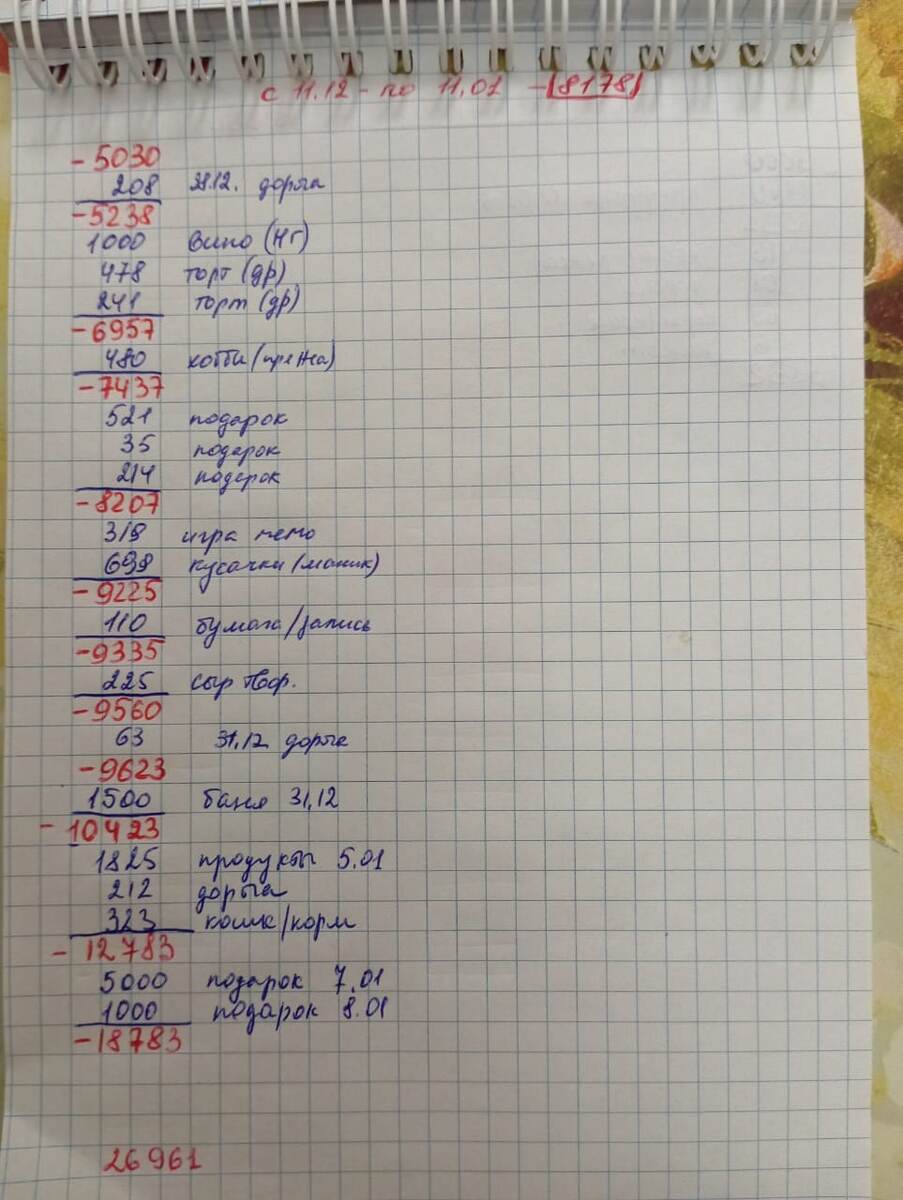 с 11.12 - по 11.01 - 8178
- 5030
208 28.12. дорога
- 5238
1000 Вино (НГ)
478 торт (др)
241 торт (др)
- 6957
480 хобби (пряжа)
- 7437
521 подарок
35 подарок
214 подарок
- 8207
319 игра мемо
699 кусачки (маник)
- 9225
110 бумага/запись
- 9335
225 сыр твор.
- 9560
63 31.12 дорога
- 9623
1500 баня 31.12
- 10423
1825 продукты 5.01
212 дорога
323 кошк/корм
- 12783
5000 подарок 7.01
1000 подарок 8.01
- 18783
26961